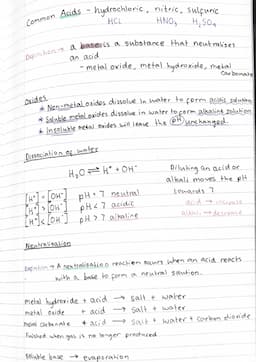 Common Acids - hydrochloric, nitric, sulfuric
HCl HNO₃ H₂SO₄
Definition → a base is a substance that neutralises
an acid
- metal oxide, metal hydroxide, metal
carbonate
Oxides
* Non-metal oxides dissolve in water to form acidic solution
* Soluble metal oxides dissolve in water to form alkaline solution
* Insoluble metal oxides will leave the pH unchanged.
Dissociation of water
H₂O ⇌ H⁺ + OH⁻
[H⁺] = [OH⁻] pH = 7 neutral
[H⁺] > [OH⁻] pH < 7 acidic
[H⁺] < [OH⁻] pH > 7 alkaline
Diluting an acid or
alkali moves the pH
towards 7
acid → increase
alkali → decrease
Neutralisation
Definition → A neutralisation reaction occurs when an acid reacts
with a base to form a neutral solution.
Metal hydroxide + acid → salt + water
metal oxide + acid → salt + water
metal carbonate + acid → salt + water + carbon dioxide
finished when gas is no longer produced
soluble base → evaporation